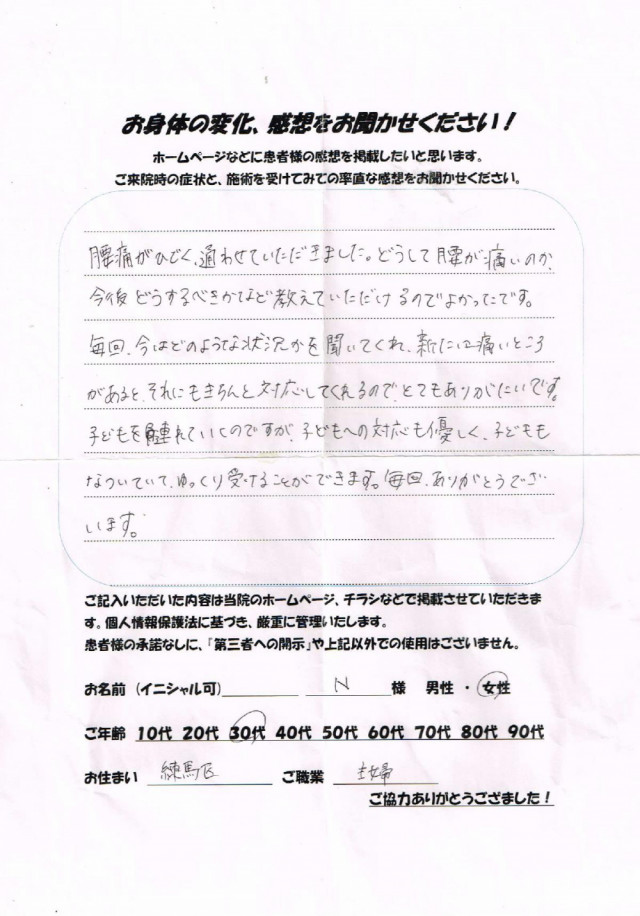 お身体の変化、感想をお聞かせください！
ホームページなどに患者様の感想を掲載したいと思います。
ご来院時の症状と、施術を受けてみての率直な感想をお聞かせください。
腰痛がひどく、通わせていただきました。どうして腰が痛いのか、
今後どうするべきかなど教えていただけるのでよかったです。
毎回、今はどのような状況かを聞いてくれ、新たに痛いところ
があると、それにもきちんと対応してくれるので、とてもありがたいです。
子どもを連れていたのですが、子どもへの対応も優しく、子どもも
なついていて、ゆっくり受けることができます。毎回、ありがとうござ
います。
ご記入いただいた内容は当院のホームページ、チラシなどで掲載させていただきま
す。個人情報保護法に基づき、厳重に管理いたします。
患者様の承諾なしに、「第三者への開示」や上記以外での使用はございません。
お名前（イニシャル可） N 様 男性 ・ 女性
ご年齢 10代 20代 30代 40代 50代 60代 70代 80代 90代
お住まい 練馬区 ご職業 主婦
ご協力ありがとうござました！